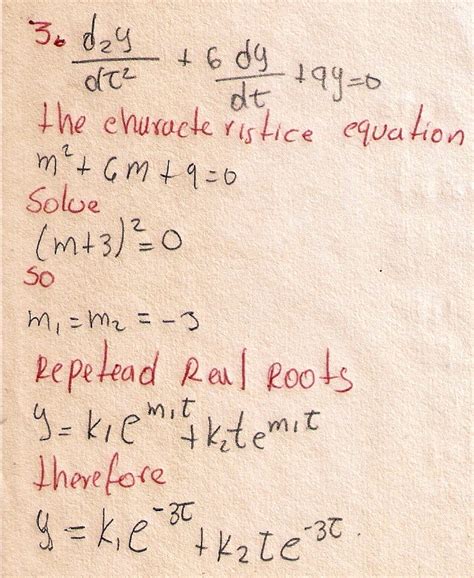 3. d₂y/dτ² + 6 dy/dt + 9y=0
the characteristice equation
m² + 6m + 9 = 0
Solve
(m+3)² = 0
so
m₁ = m₂ = -3
Repetead Real Roots
y = k₁e^m₁t + k₂te^m₁t
therefore
y = k₁e^-3τ + k₂te^-3τ.